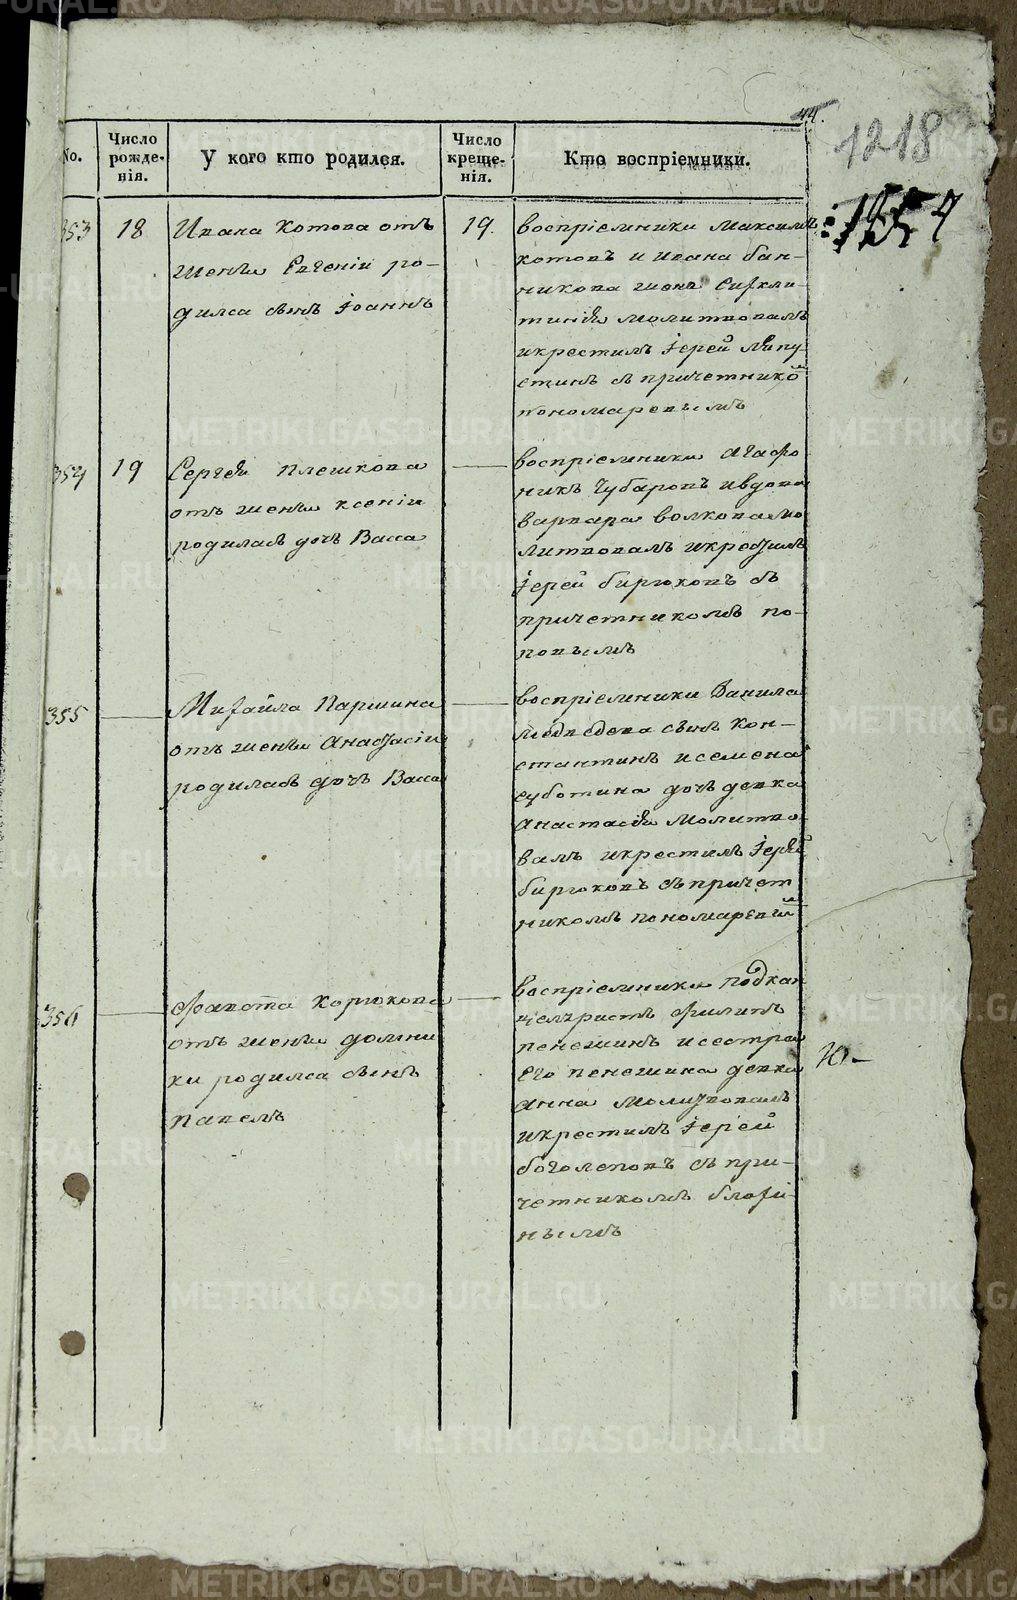 44.
1218
No.
Число рожде- нія.
У кого кто родился.
Число креще- нія.
Кто воспріемники.
353
18
Ивана Котова отъ
жены Евгеніи ро-
дился сынъ Іоаннъ
19.
воспріемники Максимъ
котовъ и ивана бан-
никова жена Сиѵкли-
тикія молитвовалъ
икрестилъ Іерей Лапу-
стинъ съ причетнико
пономаревымъ
354
19
Сергѣя плешкова
отъ жены ксеніи
родилась дочь Васса
воспріемники Агафо
никъ Чубаровъ ивдова
варвара волкова мо
литвовалъ икрестилъ
Іерей бирюковъ съ
причетникомъ по-
повымъ
355
Михайла Паршина
отъ жены Анастасіи
родилась дочь Васса
воспріемники Данила
медведева сынъ Кон-
стантинъ исемена
суботина дочь девка
Анастасія Молитво
валъ икрестилъ Іерей
бирюковъ съ причет
никомъ пономаревы
356
Фавста Корюкова
отъ жены домни
ки родился сынъ
павелъ
Воспріемники подкан
целяристъ Филипъ
пенешинъ исестра
Его пенешина девка
Анна Молитвовалъ
икрестилъ Іерей
боголеповъ съ при-
четникомъ блохи-
нымъ
METRIKI.GASO-URAL.RU